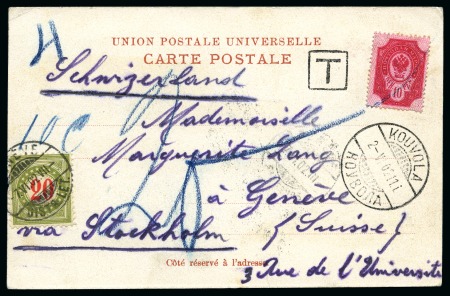 UNION POSTALE UNIVERSELLE
CARTE POSTALE
T
10
Schwizerland
10 C
Mademoiselle
Marguerite Lang
à Genève
(Suisse)
via Stockholm
KOUVOLA
2-X
КОУВОЛА
20
Côté réservé à l'adresse
3 Rue de l'Université